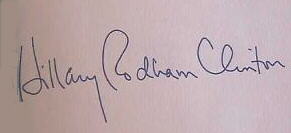 Hillary Rodham Clinton